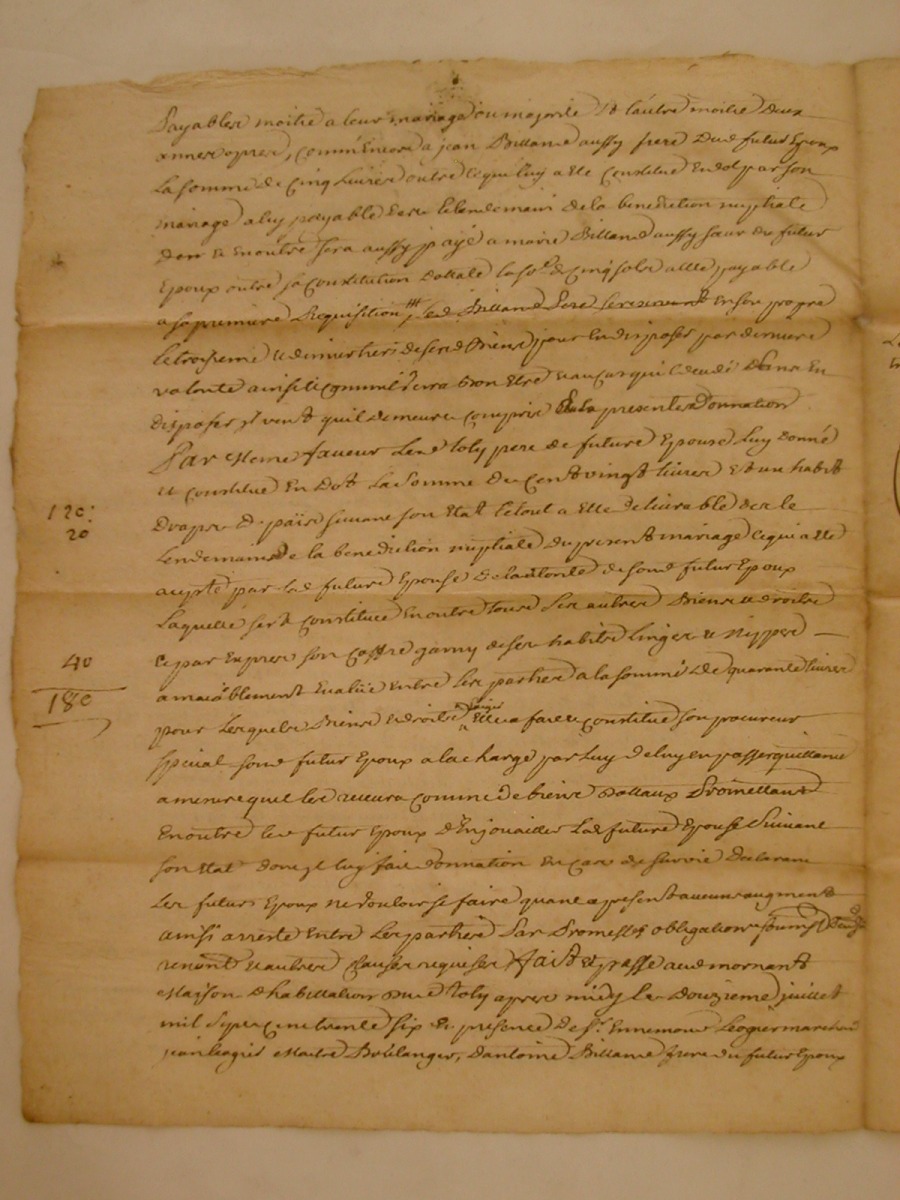 Payables moitié a leur mariage ou majorité et l'autre moitié deux
années apres, comm'encore a jean Billand aussy frere dud futur Epoux
la somme de cinq livres outre ce qui luy a eté constitué en dot par son
mariage a luy payable des le lendemain de la benediction nuptiale
et en outre sera aussy payé a marie Billand aussy sœur du futur
Epoux outre sa constitution dottale la so.e de cinq sols a elle payable
a sa premiere Requisition led Billand Pere se reservant en son propre
le troizieme de ses d Biens pour en disposer par derniere
volonté ainsi comme verra bon etre et au cas qu'il decede sans en
disposer il veut qu'il demeure compris a la presente donnation
Par meme faveur led toly pere de future Epouse luy donne
et constitue en dot la somme de cent vingt livres et un habit
drap de païs suivant son etat le tout a elle delivrable des le
lendemain de la benediction nuptiale du present mariage ce qui a ete
accepté par lad future Epouse de l'autorité de sond futur Epoux
laquelle se constitue en outre tous ses autres Biens et droits
et par Exprés son coffre garny de ses habits linges et nippes
amiablement Evalué entre les parties a la somme de quarante livres
pour lesquels Biens et droits Exiger Elle a fait et constitué son procureur
special sond futur Epoux a la charge par luy de luy en passer quittance
a mesure qu'il les recevra comme de biens dottaux Promettant
En outre led futur Epoux d'Enjouailler lad future Epouse suivant
son Etat dont il luy fait donnation en cas de survie declarant
les futurs Epoux ne vouloir se faire quant a present aucun augment
ainsi arresté entre les parties Par Promesses obligations soumissions
renont et autres clauses requises fait et passé aud mornant
Maison d'habitation dud toly apres midy le douzieme juillet
mil sept cent trente six En presence de s.r Ennemond Leogier marchand
jean leogier Maitre Boulanger, d'antoine Billand frere du futur Epoux
120:
20
40
180